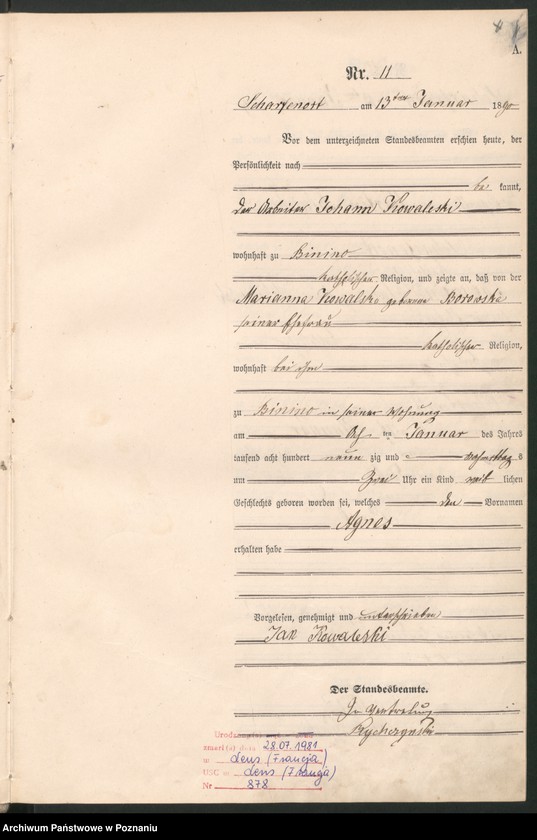 A.
Nr. 11
Scharfenort am 13ten Januar 1890
Vor dem unterzeichneten Standesbeamten erschien heute, der
Persönlichkeit nach
be kannt,
der Arbeiter Johann Kowaleski
wohnhaft zu Binino
katholischer Religion, und zeigte an, daß von der
Marianna Kowalska geborene Borowski
seiner Ehefrau
katholischer Religion,
wohnhaft bei ihm
zu Binino in seiner Wohnung
am ten Januar des Jahres
tausend acht hundert neun zig und
um zwei Uhr ein Kind weib lichen
Geschlechts geboren worden sei, welches den Vornamen
Agnes
erhalten habe
Vorgelesen, genehmigt und unterschrieben
Jan Kowaleski
Der Standesbeamte.
In Vertretung
zmarł(a) dnia 28.07.1981
w Lens (Francja)
USC Lens (Francja)
Nr 878
Archiwum Państwowe w Poznaniu